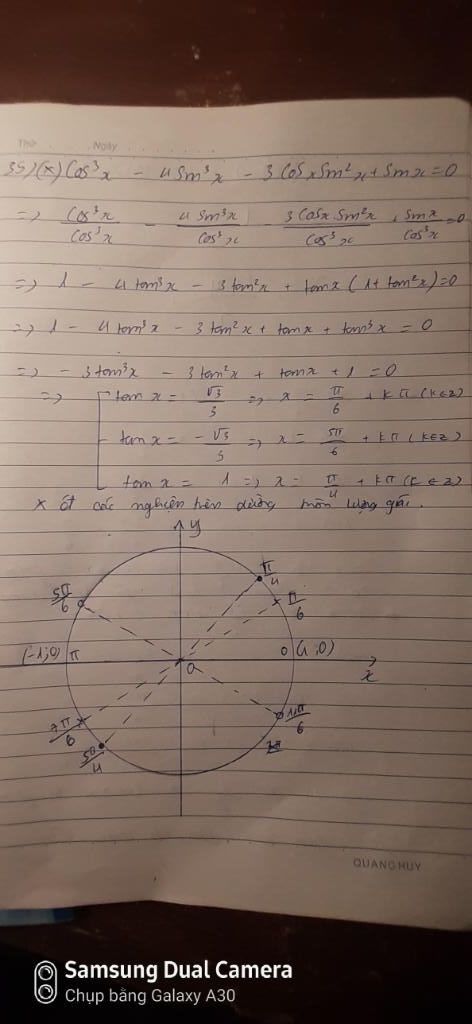 Thứ ........ Ngày ........
35) (*) Cos³x - 4 Sin³x - 3 Cosx Sin²x + Sinx = 0
=> Cos³x/Cos³x - 4 Sin³x/Cos³x - 3 Cosx Sin²x/Cos³x + Sinx/Cos³x = 0
=> 1 - 4 tan³x - 3 tan²x + tanx (1 + tan²x) = 0
=> 1 - 4 tan³x - 3 tan²x + tanx + tan³x = 0
=> - 3 tan³x - 3 tan²x + tanx + 1 = 0
=> tan x = √3/3 => x = π/6 + kπ (k∈Z)
tan x = - √3/3 => x = 5π/6 + kπ (k∈Z)
tan x = 1 => x = π/4 + kπ (k∈Z)
các nghiệm trên đường tròn lượng giác.
y
5π/6
π/4
π/6
(-1;0) π
O
0 (1;0)
x
7π/6
5π/4
11π/6
QUANG HUY
Samsung Dual Camera
Chụp bằng Galaxy A30